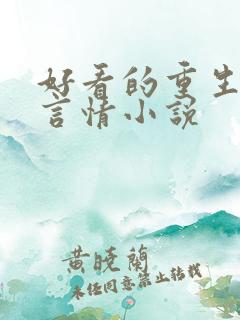 好看的重生
言情小說
黄曉蘭
未經同意禁止轉載